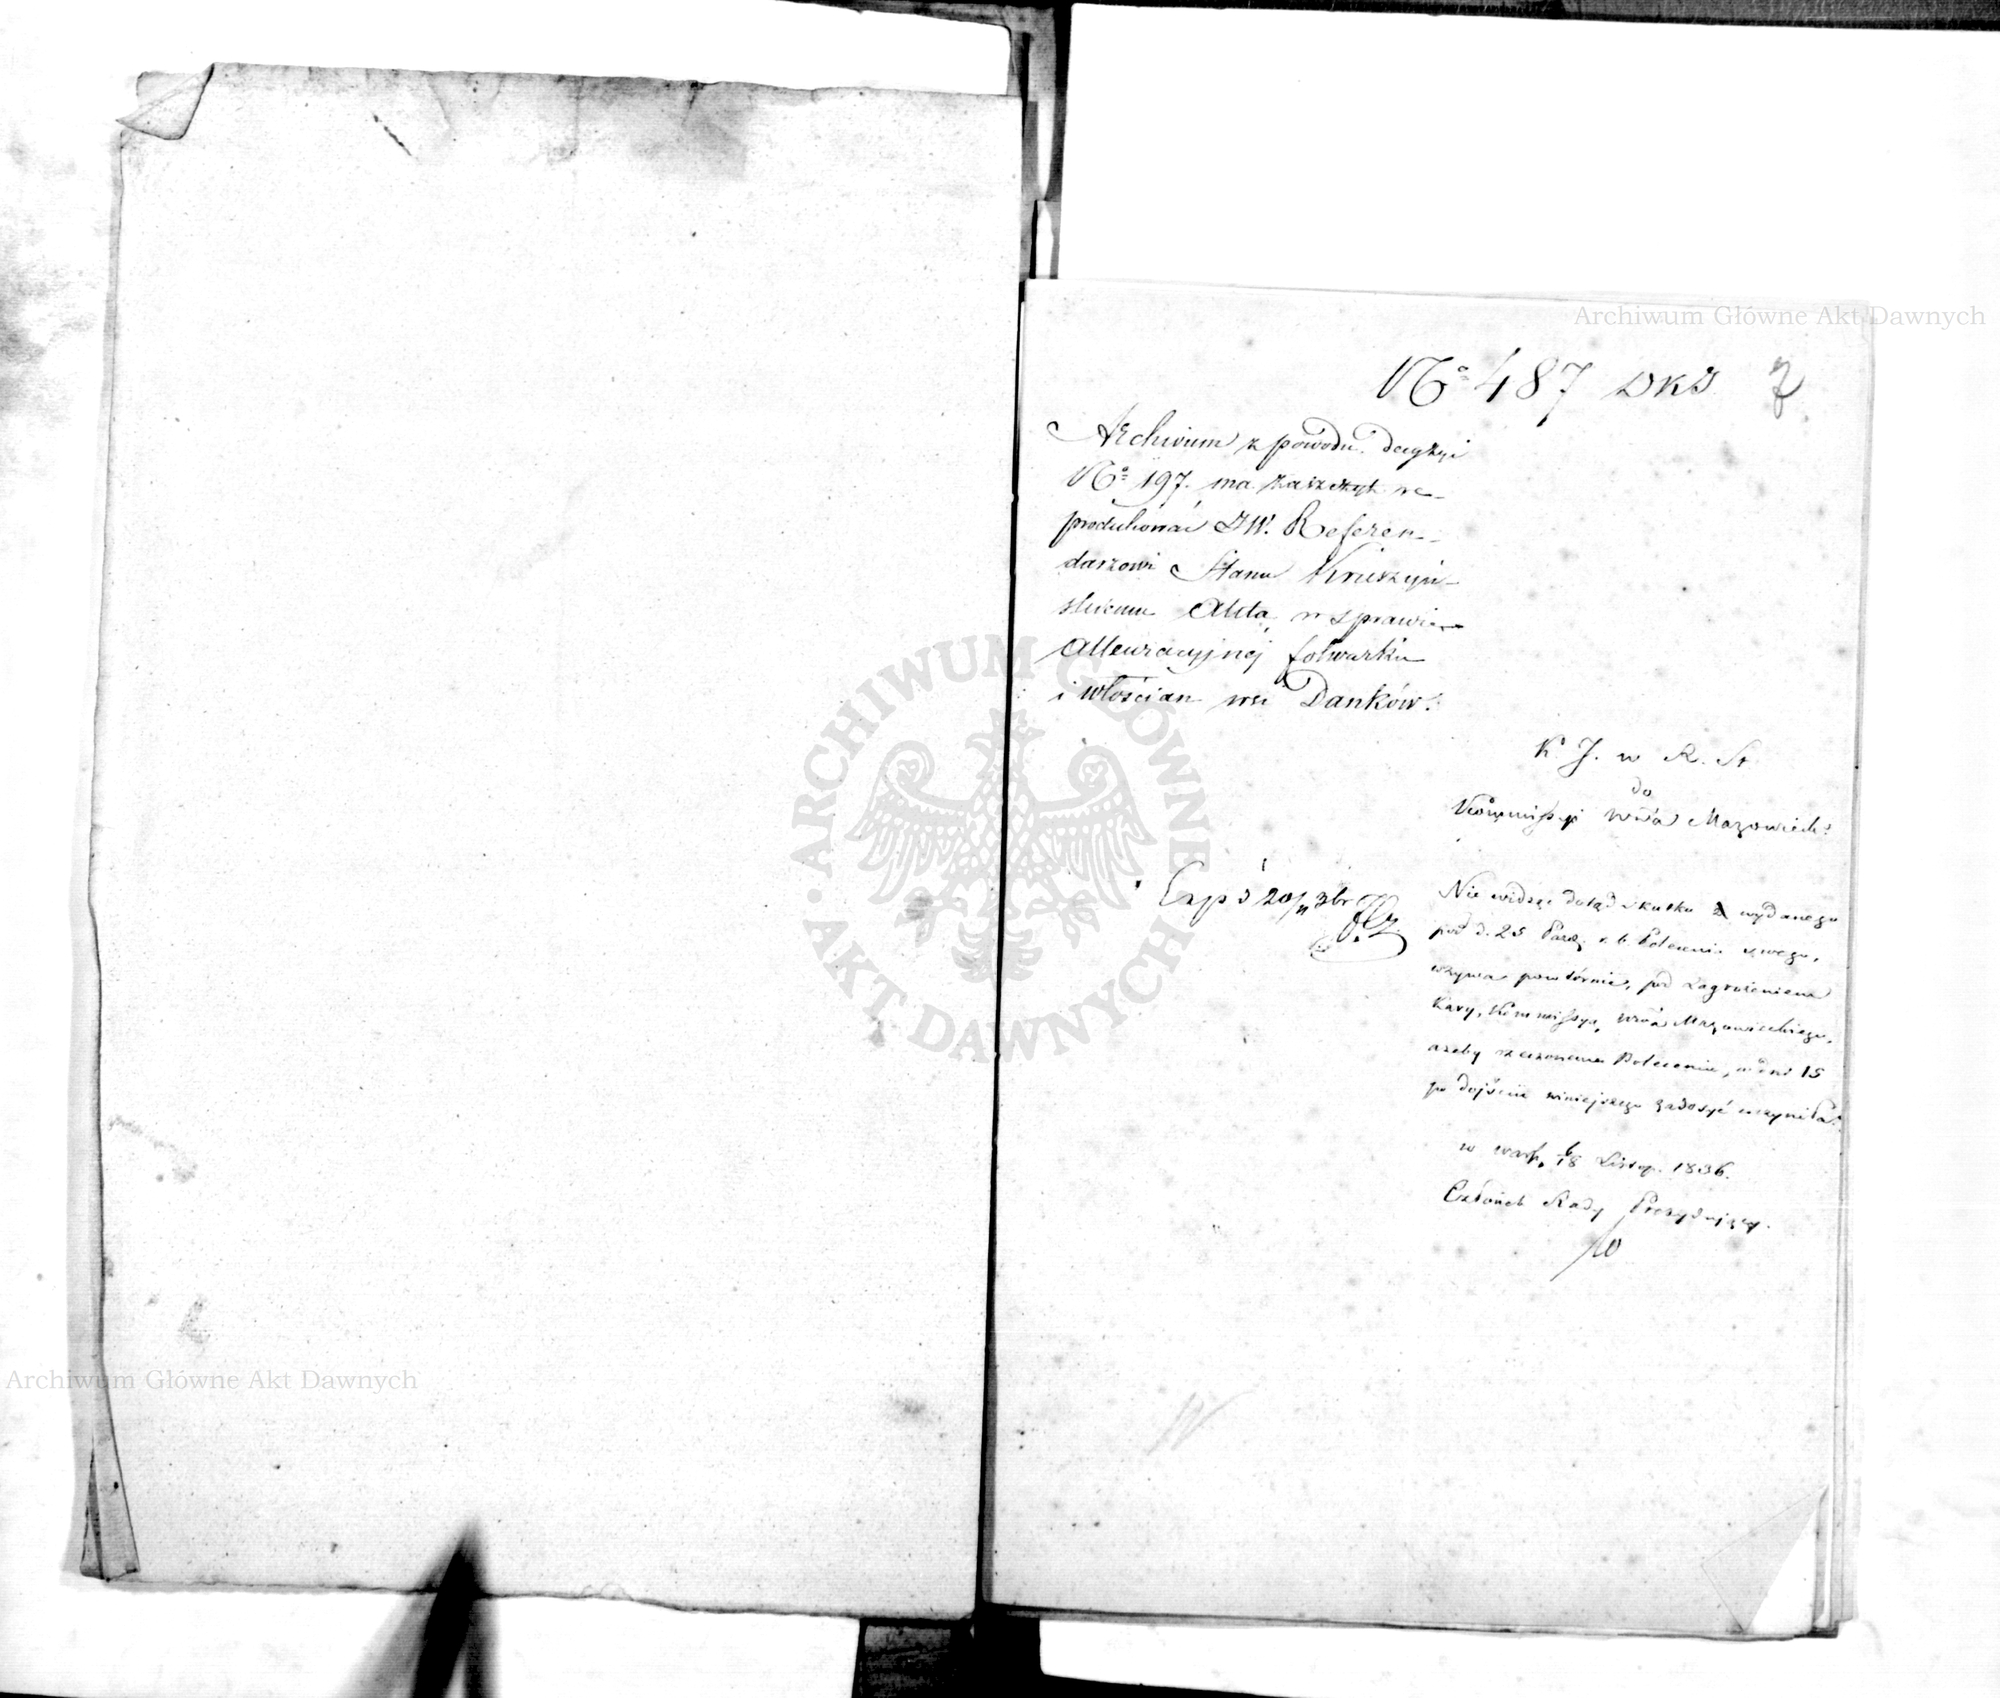 Archiwum Główne Akt Dawnych
No 487 DKJ 7
Archiwum z powodu decyzyi
No 197. ma zaszczyt re-
produkować JW. Referen-
darzowi Stanu Kruszyń-
skiemu Akta w sprawie
Allewiacyjnej folwarku
i włościan wsi Danków.
K. J. w R. St.
do
Kommissyi Wwa Mazowieck:
Nie widząc dotąd skutku wydanego
pod d. 25 Paźdz. r. b. Polecenia swego,
wzywa powtórnie, pod zagrożeniem
kary, Kommissyą Wwa Mazowieckiego,
ażeby rzeczonemu Poleceniu, w dni 15
po dojściu niniejszego zadosyć uczyniła.
w Warsz. 6/18 Listop. 1836.
Członek Rady Prezydujący.
Exp d 20/11
ARCHIWUM GŁÓWNE
AKT DAWNYCH
Archiwum Główne Akt Dawnych